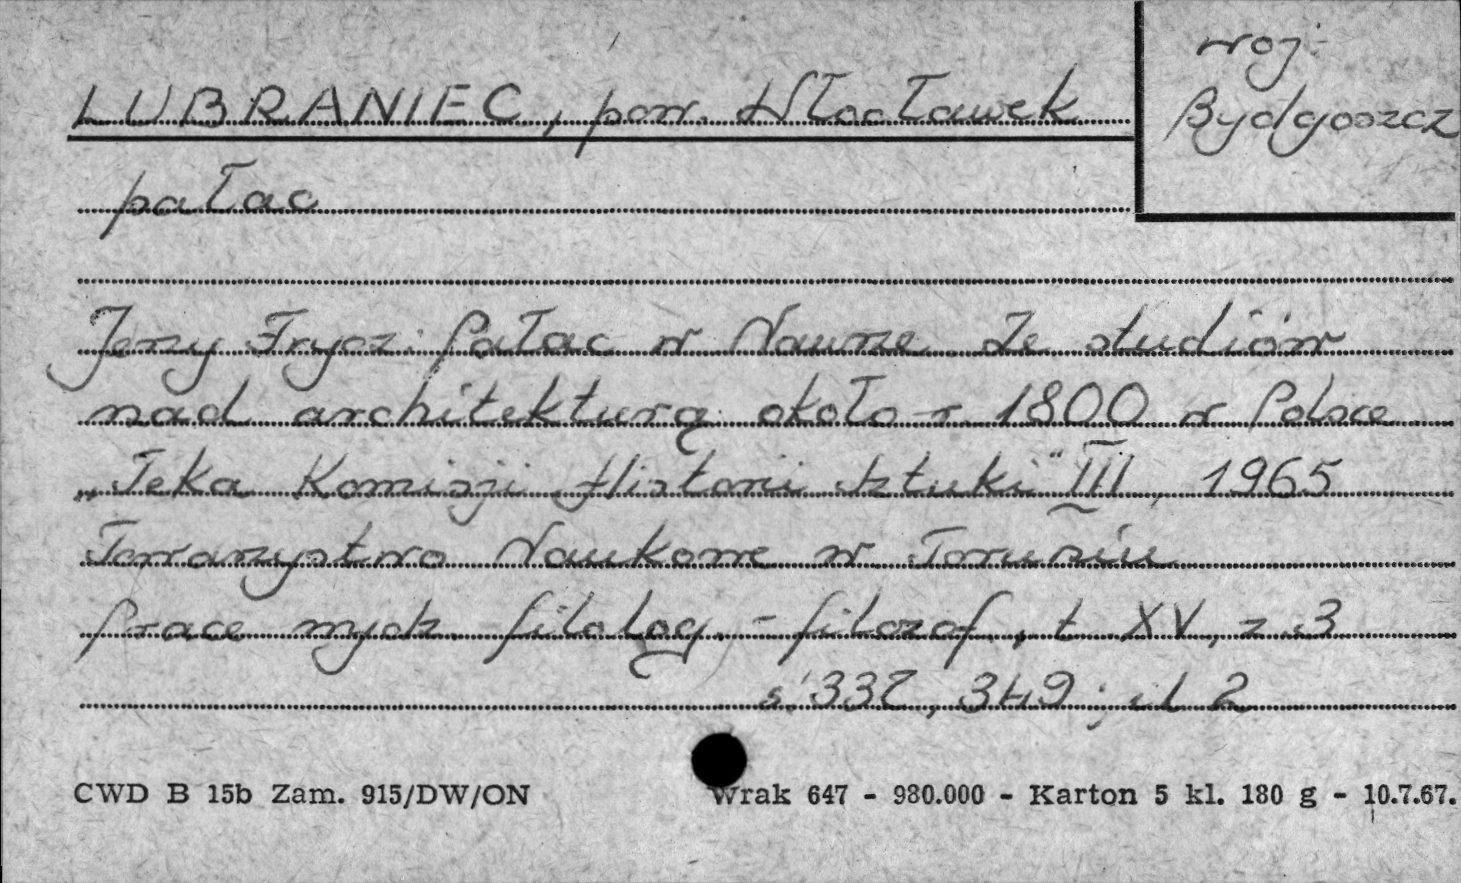 woj.
Bydgoszcz
LUBRANIEC, pow. Włocławek
pałac
Jerzy Frycz: Pałac w Nawrze. Ze studiów
nad architekturą około r. 1800 w Polsce
„Teka Komisji Historii Sztuki" III, 1965
Towarzystwo Naukowe w Toruniu
Prace wydz. filolog. - filozof., t XV, z. 3
s. 337, 349; il 2
CWD B 15b Zam. 915/DW/ON Wrak 647 - 980.000 - Karton 5 kl. 180 g - 10.7.67.